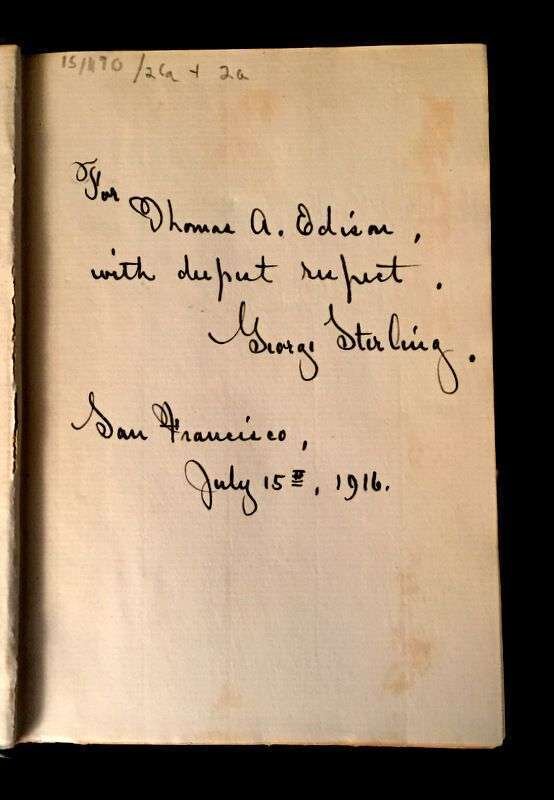 For
Thomas A. Edison,
with deepest respect.
George Sterling.
San Francisco,
July 15th, 1916.